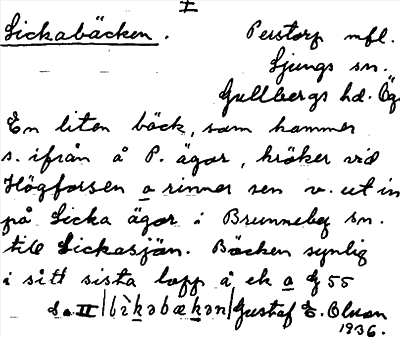 I
Lickabäcken.
Perstorp mfl.
Ljungs sn.
Gullbergs hd. Ög.
En liten bäck, som kommer
s. ifrån å P. ägor, kröker vid
Högforsen a rinner sen v. ut in
på Licka ägor i Brunneby sn.
till Lickasjön. Bäcken synlig
i sitt sista lopp å ek a G 55
s. II |lìkəbækən| Gustaf E. Olsson
1936.